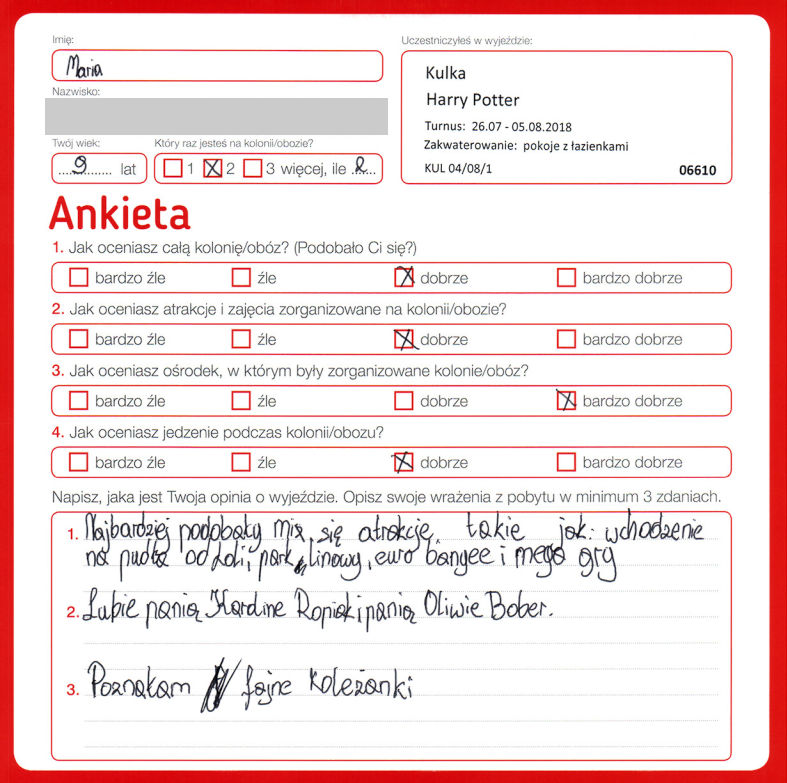 Imię:
Maria
Nazwisko:
Twój wiek:
9 lat
Który raz jesteś na kolonii/obozie?
1 2 3 więcej, ile 2
Uczestniczyłeś w wyjeździe:
Kulka
Harry Potter
Turnus: 26.07 - 05.08.2018
Zakwaterowanie: pokoje z łazienkami
KUL 04/08/1 06610
Ankieta
1. Jak oceniasz całą kolonię/obóz? (Podobało Ci się?)
bardzo źle źle dobrze bardzo dobrze
2. Jak oceniasz atrakcje i zajęcia zorganizowane na kolonii/obozie?
bardzo źle źle dobrze bardzo dobrze
3. Jak oceniasz ośrodek, w którym były zorganizowane kolonie/obóz?
bardzo źle źle dobrze bardzo dobrze
4. Jak oceniasz jedzenie podczas kolonii/obozu?
bardzo źle źle dobrze bardzo dobrze
Napisz, jaka jest Twoja opinia o wyjeździe. Opisz swoje wrażenia z pobytu w minimum 3 zdaniach.
1. Najbardziej podobały mi się atrakcje takie jak: wchodzenie
na pudła od coli, park linowy, euro bangee i mega gry
2. Lubie panią Karoline Ropiak i panią Oliwie Bober.
3. Poznałam fajne koleżanki